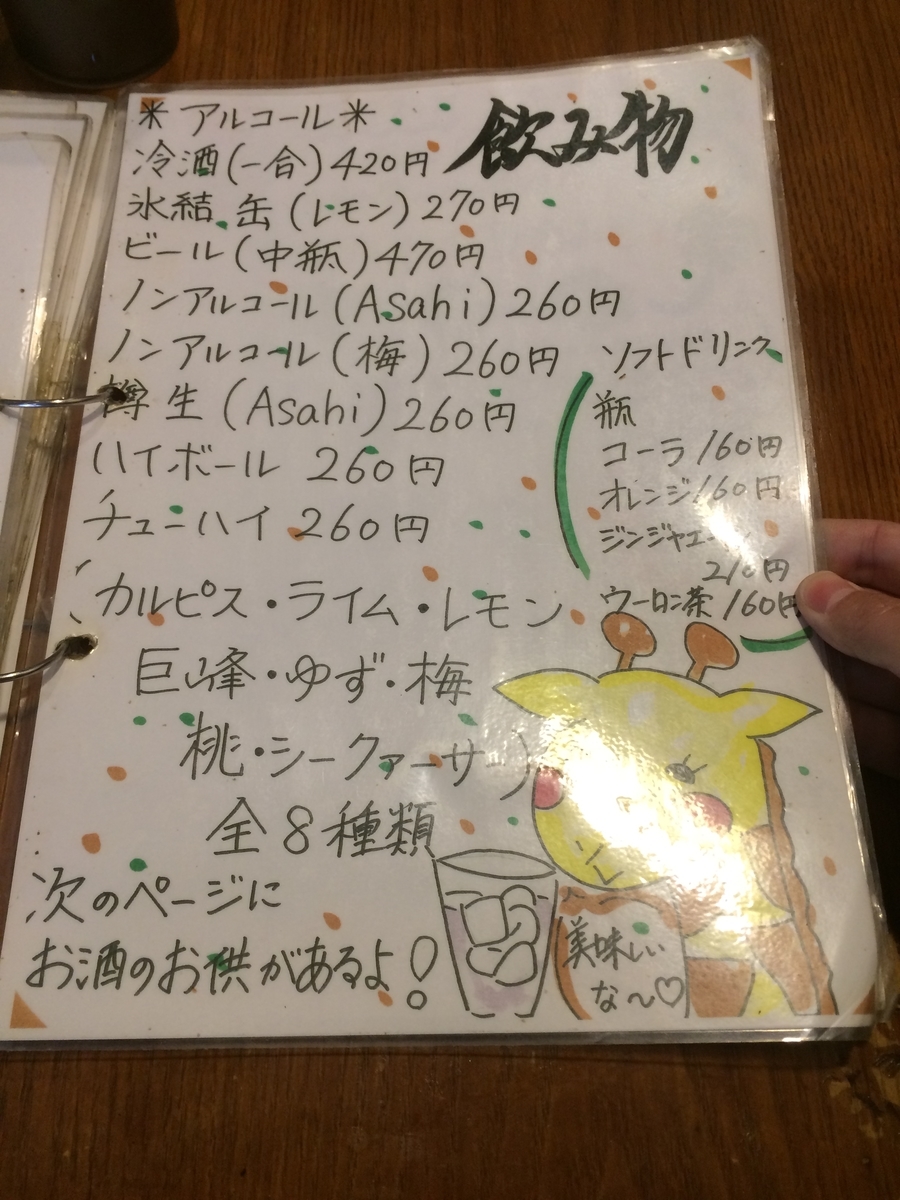 飲み物
＊アルコール＊
冷酒(一合)420円
氷結 缶(レモン)270円
ビール(中瓶)470円
ノンアルコール(Asahi)260円
ノンアルコール(梅)260円
樽生(Asahi)260円
ハイボール 260円
チューハイ 260円
(カルピス・ライム・レモン
巨峰・ゆず・梅
桃・シークァーサー)
全8種類
次のページに
お酒のお供があるよ!
ソフトドリンク
瓶
コーラ160円
オレンジ160円
ジンジャエール
210円
ウーロン茶160円
美味しい
な〜♡